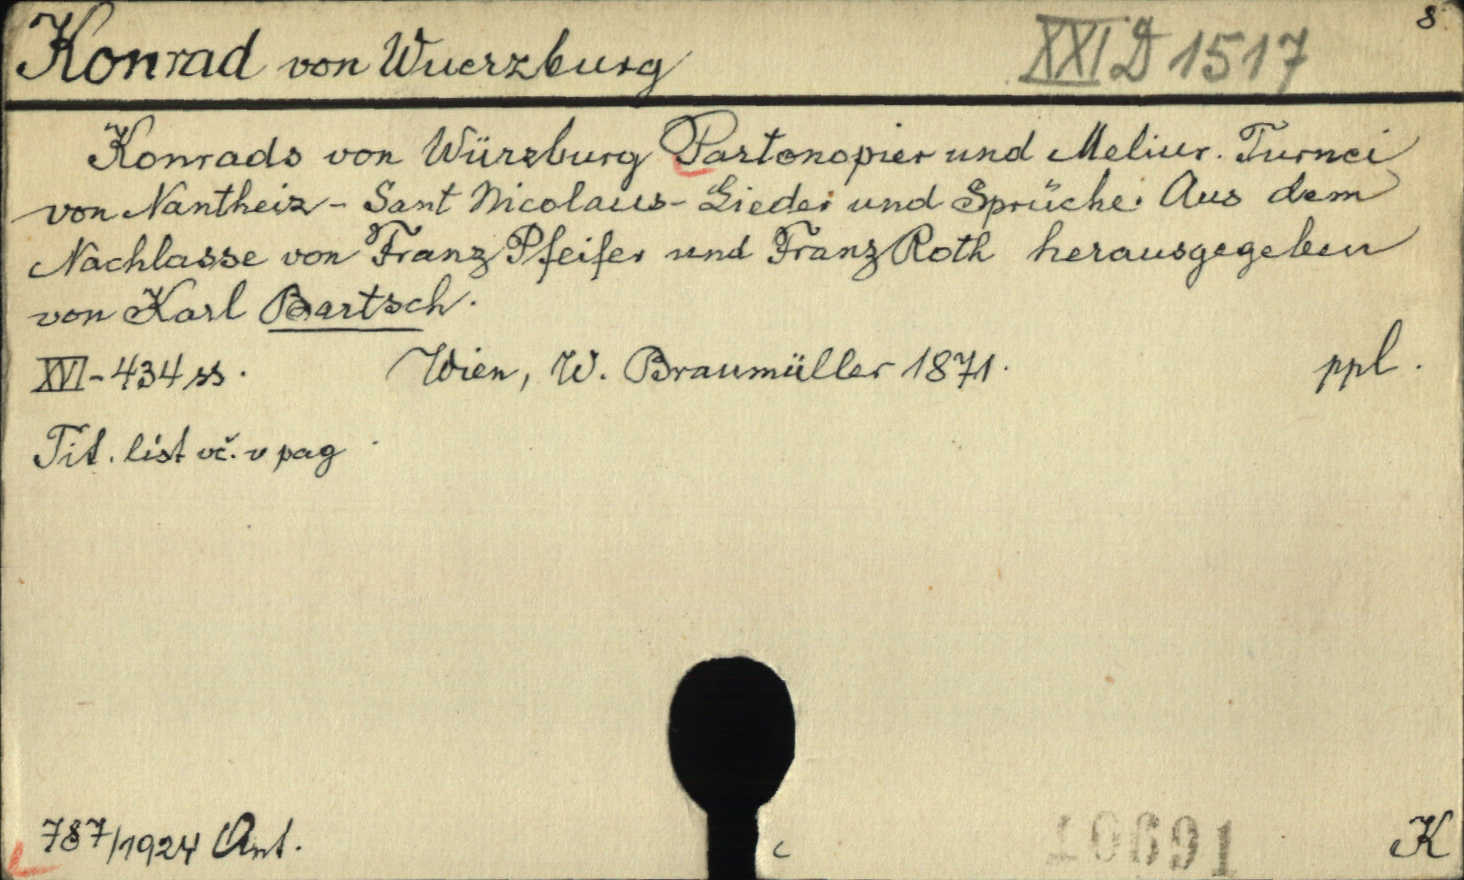 8
Konrad von Wuerzburg XXI D 1517
Konrads von Würzburg Partonopier und Meliur. Turnei
von Nantheiz - Sant Nicolaus - Lieder und Sprüche. Aus dem
Nachlasse von Franz Pfeifer und Franz Roth herausgegeben
von Karl Bartsch.
XVI - 434 ss. Wien, W. Braumüller 1871. ppl.
Tit. list vč. v pag
787/1924 Ant. c K